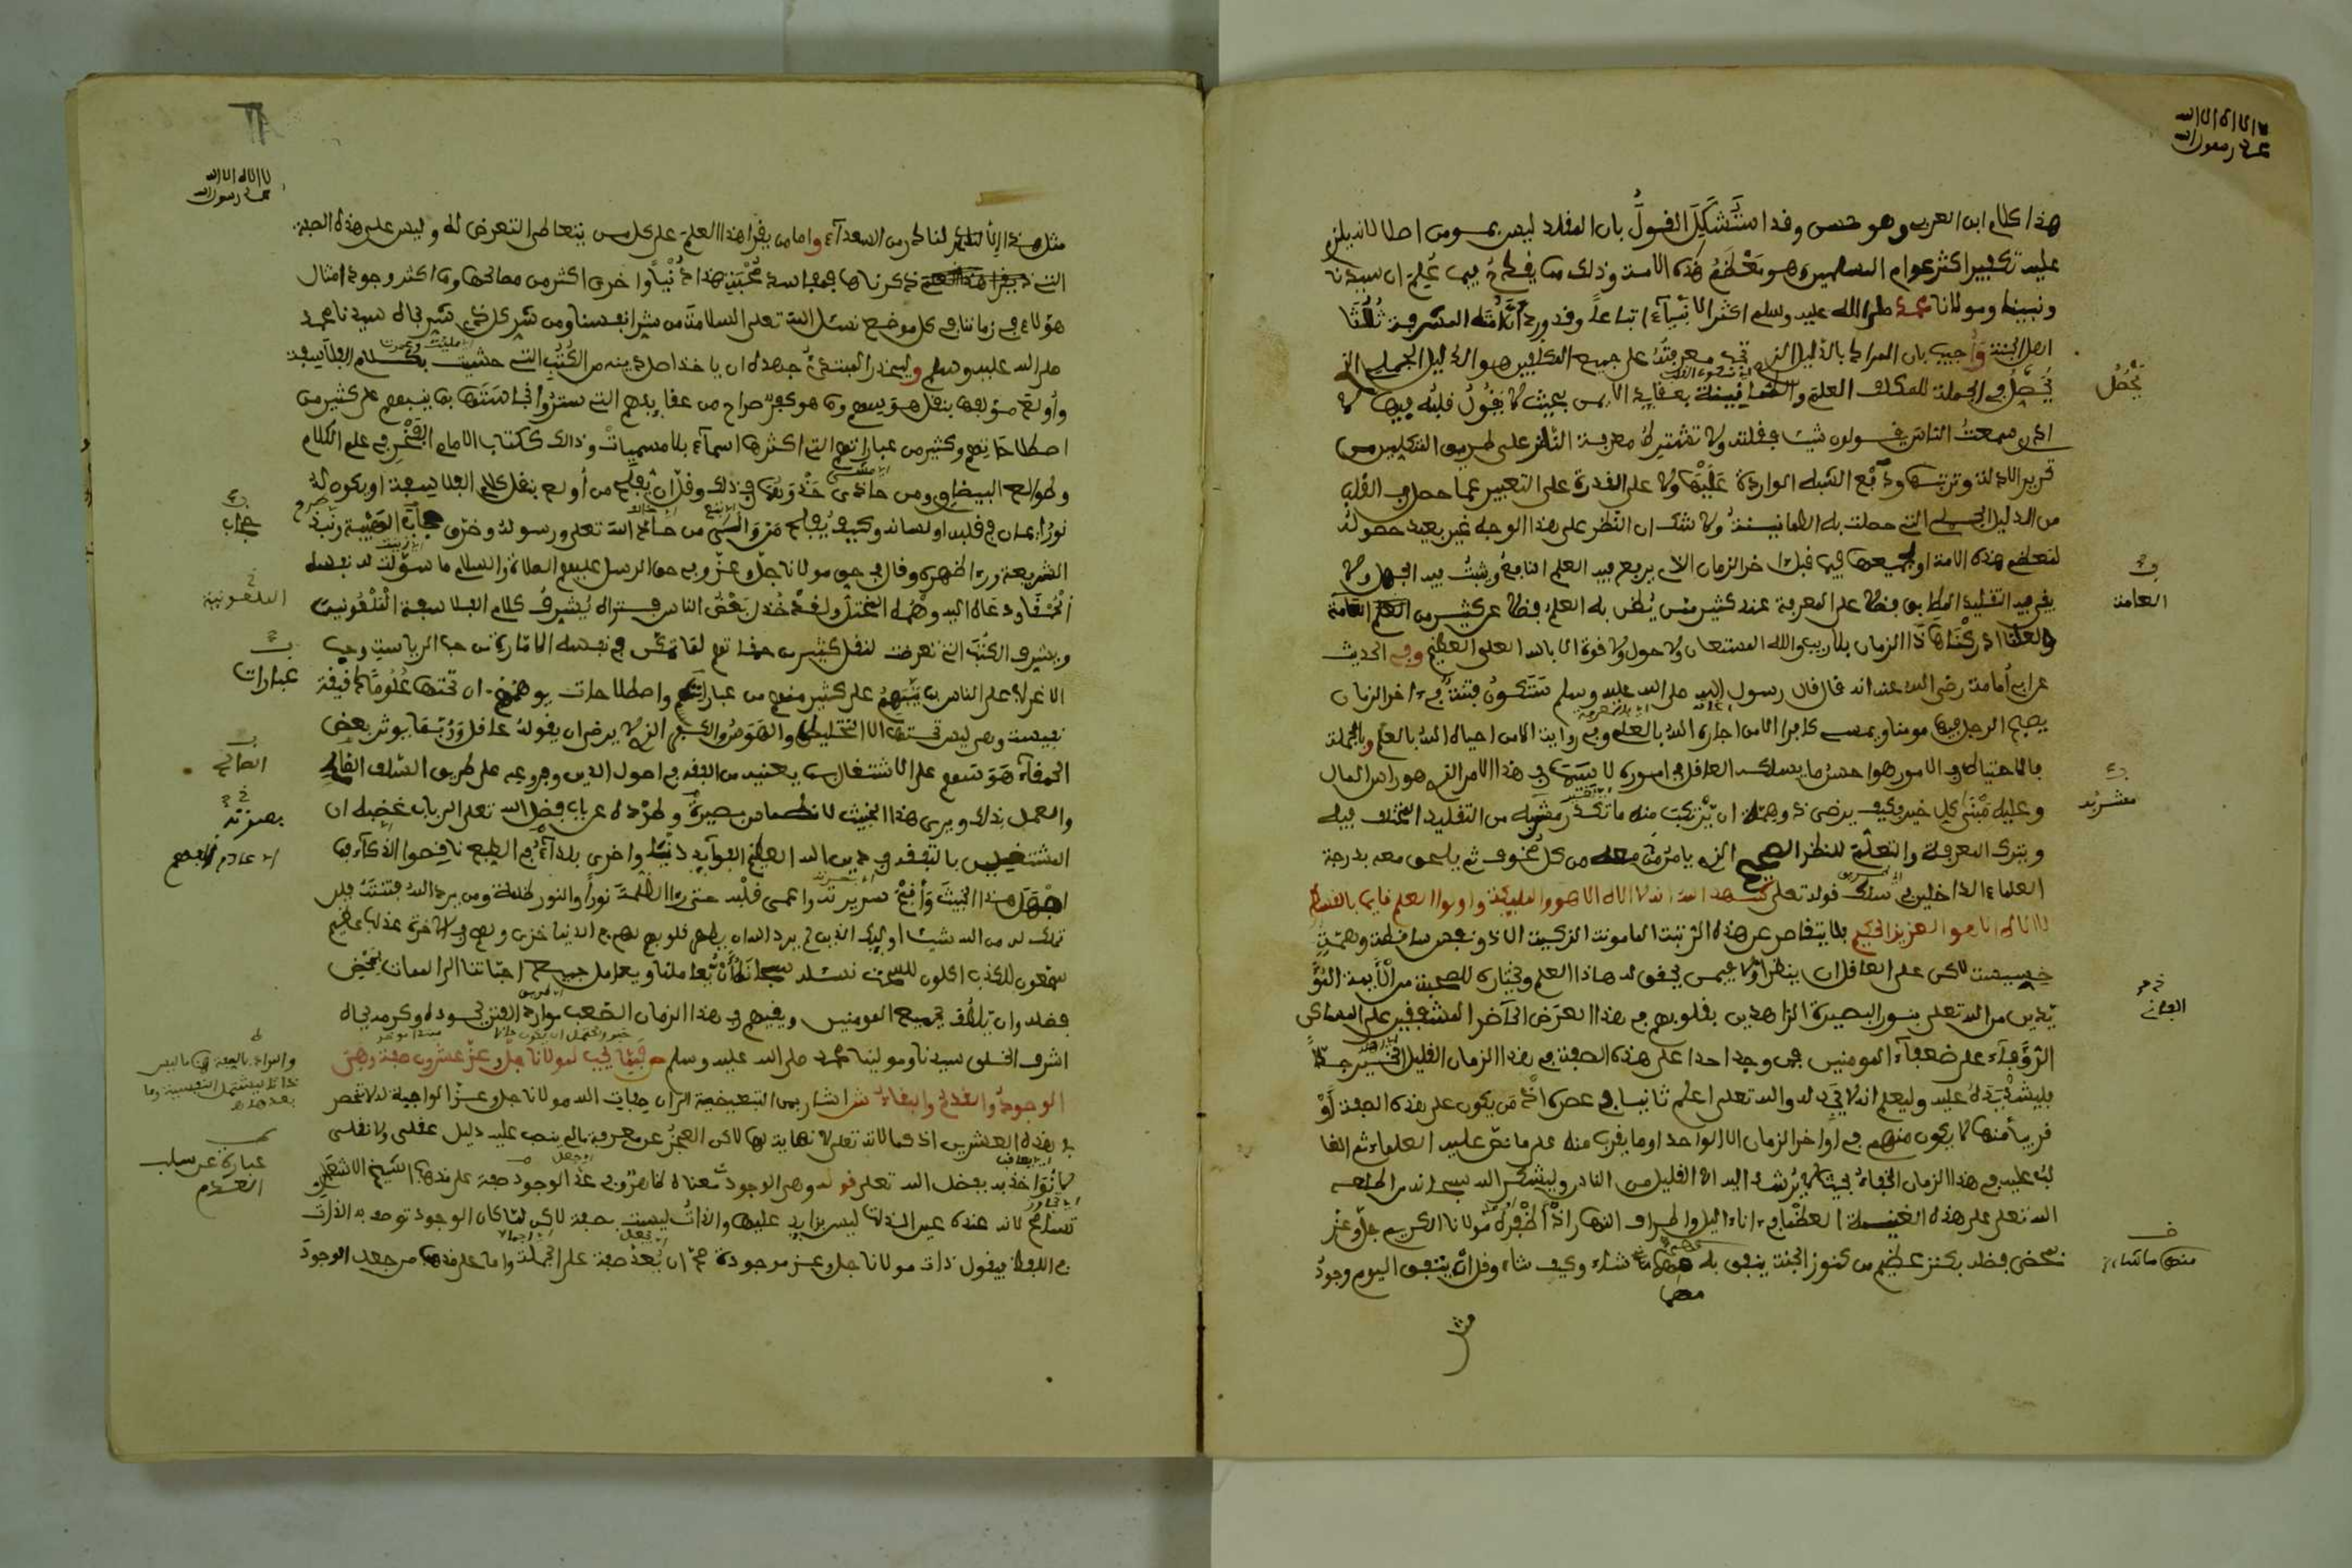 لا اله الا الله
محمد رسول الله
هذا كلام ابن العربي وهو حسن وقد استشكل القول بان المقلد ليس بمومن اصلا لانه يلزم
عليه تكفير اكثر عوام المسلمين وهم معظم هذه الامة وذلك مما يقدح فيما علم ان سيدنا
ونبينا ومولانا محمدا صلى الله عليه وسلم اكثر الانبياء اتباعا وقد ورد ان امته المشرفة ثلثا
اهل الجنة وأجيب بان المراد بالدليل الذي تجب معرفته على جميع المكلفين هو الدليل الجملي الذي
يحصل في الجملة للمكلف العلم والطمانينة بعقايد الايمن بحيث لا يقول قلبه فيها لا
ادري سمعت الناس يقولون شيئا فقلته ولا تشترط معرفة النظر على طريق المتكلمين من
تحرير الادلة وترتيبها ودفع الشبه الواردة عليها ولا على القدرة على التعبير عما حصل في القلب
من الدليل الجملي التي حصلت به الطمانينة ولا شك ان النظر على هذا الوجه غير بعيد حصوله
لمعظم هذه الامة او لجميعها فيما قبل اخر الزمان الذي يرفع فيه العلم النافع ويثبت فيه الجهل ولا
يبقى فيه التقليد المطابق فضلا على المعرفة عند كثير ممن يظن به العلم فضلا عن كثير من العامة
ولعلنا ادركنا هذا الزمان بلا ريب والله المستعان ولا حول ولا قوة الا بالله العلي العظيم وفي الحديث
عن ابي أمامة رضي الله عنه انه قال قال رسول الله صلى الله عليه وسلم ستكون فتنة في اخر الزمان
يصبح الرجل فيها مومنا ويمسي كافرا الا من اجاره الله بالعلم وفي رواية الا من احياه الله بالعلم وبالجملة
فالاحتياط في الامور هو احسن ما يسلكه العاقل في اموره لا سيما في هذا الامر الذي هو راس المال
وعليه يبنى كل خير فكيف يرضى ذو همة ان يرتكب منه ما تكدر مشربه من التقليد المختلف فيه
ويترك المعرفة والتعلم للنظر الصحيح الذي يامن معه من كل مخوف ثم يلحق معه بدرجة
العلماء الداخلين في سلك قوله تعلى شهد الله انه لا اله الا هو والمليكة واولوا العلم قايما بالقسط
لا اله الا هو العزيز الحكيم فلا يتقاصر عن هذه الرتبة المامونة الزكية الا ذو نفس ساقطة وهمة
خسيسة لاكن على العاقل ان ينظر اولا فيمن يحقق له هاذا العلم ويختاره للصحبة من الأيمة المؤ
يدين من الله تعلى بنور البصيرة الزاهدين بقلوبهم في هذا العرض الحاضر المشفقين على المساكين
الرؤفاء على ضعفاء المومنين فمن وجد احدا على هذه الصفة في هذا الزمان القليل الخير جدا
فليشد يده عليه وليعلم انه لا يجد له والله تعلى اعلم ثانيا في عصره اذ من يكون على هذه الصفة أو
قريبا منها لا يكون منهم في اواخر الزمان الا الواحد او ما يقرب منه على ما نص عليه العلماء ثم الغا
لب عليه في هذا الزمان الخفاء بحيث لا يرشد اليه الا القليل من الناس وليشكر الله سبحانه من اطلعه
الله تعلى على هذه الغنيمة العظمى اناء اليل واطراف النهار اذ أظفره مولانا الكريم جل وعز
بمحض فضله بكنز عظيم من كنوز الجنة ينفق له منها ما شاء وكيف شاء وقل ان يتفق اليوم وجود
مثل
يحصل
العامة
مشربه
منها ما شاء
لا اله الا الله
محمد رسول الله
مثل هذا الا لنادر من السعداء واما من يقرا هذا العلم على كل من يتعاطى التعرض له وليس على هذه الصفة
التي ذكرناها فمفاسد صحبته هذا دنيا واخرى اكثر من مصالحها وما اكثر وجود امثال
هؤلاء في زماننا في كل موضع نسئل الله تعلى السلامة من شر انفسنا ومن شر كل ذي شر بجاه سيدنا محمد
صلى الله عليه وسلم وليحذر المبتدئ جهده ان ياخذ اصل دينه من الكتب التي حشيت بكلام الفلاسفة
وأولع مؤلفها بنقل هوسهم وما هو كفر صراح من عقايدهم التي ستروا نجاستها بما ينبهم على كثير من
اصطلاحاتهم وكثير من عباراتهم التي اكثرها اسماء بلا مسميات وذلك ككتاب الامام الفخر في علم الكلام
وطوالع البيضاوي ومن حاذى حذوهما في ذلك وقل ان يفلح من أولع بنقل كلام الفلاسفة او يكون له
نور ايمان في قلبه او لسانه وكيف يفلح من والى من حاد الله تعلى ورسوله وخرق حجاب الهيبة ونبذ
الشريعة وراء ظهره وقال في حق مولانا جل وعز وفي حق الرسل عليهم الصلاة والسلام ما سولت له نفسه
الحمقا ودعاه اليه وهمه المختل ولقد خذل بعض الناس فتراه يشرف كلام الفلاسفة الملعونين
ويشرف الكتب التي تعرضت لنقل كثير من حماقاتهم لما تمكن في نفسه الامارة من حب الرياسة وحب
الاغراب على الناس بما ينبهم على كثير منهم من عبارات واصطلاحات يوهمهم ان تحتها علوما دقيقة
نفيسة وهي ليس تحتها الا التخليط والهوس والكفر الذي لا يرضى ان يقوله عاقل وربما يوثر بعض
الحمقاء هوسهم على الاشتغال بما يعنيه من الفقه في اصول الدين وفروعه على طريق السلف الصالح
والعمل بذلك ويرى هذا الخبيث لانطماس بصيرته وطرده عن باب فضل الله تعلى الى باب غضبه ان
المشتغلين بالتفقه في دين الله العظيم الفوايد دنيا واخرى بلداء الطبع ناقصوا الذكاء فما
اجهل هذا الخبيث وأقبح سريرته واعمى قلبه حتى راى الظلمة نورا والنور ظلمة ومن يرد الله فتنته فلن
تملك له من الله شيئا اوليك الذين لم يرد الله ان يطهر قلوبهم لهم في الدنيا خزي ولهم في الاخرة عذاب عظيم
سمعون للكذب اكلون للسحت نسئله سبحانه أن يعاملنا ويعامل جميع احبتنا الى الممات بمحض
فضله وان يلطف بجميع المومنين ويقيهم في هذا الزمان الصعب موارد الفتن بجوده وكرمه بجاه
اشرف الخلق سيدنا ومولينا محمد صلى الله عليه وسلم فمما يجب لمولانا جل وعز عشرون صفة وهي
الوجود والقدم والبقاء ش اشار بمن التبعيضية الى ان صفات الله مولانا جل وعز الواجبة له لا تنحصر
في هذه العشرين اذ كمالاته تعلى لا نهاية لها لاكن العجز عن معرفة ما لم ينصب عليه دليل عقلي ولا نقلي
لا نؤاخذ به بفضل الله تعلى قوله وهي الوجود معناه ظاهر وفي عد الوجود صفة على مذهب الشيخ الاشعري
تسامح لانه عنده عين الذات ليس بزايد عليها والذات ليست بصفة لاكن لما كان الوجود توصف به الذات
في اللفظ فيقول ذات مولانا جل وعز موجودة صح ان يعد صفة على الجملة واما على مذهب من جعل الوجود
الملعونين
عبارات
الصالح
بصيرته
والمراد بالصفة هنا ما ليس
بذات ليشمل النفسية وما
بعدها
عبارة عن سلب
العدم